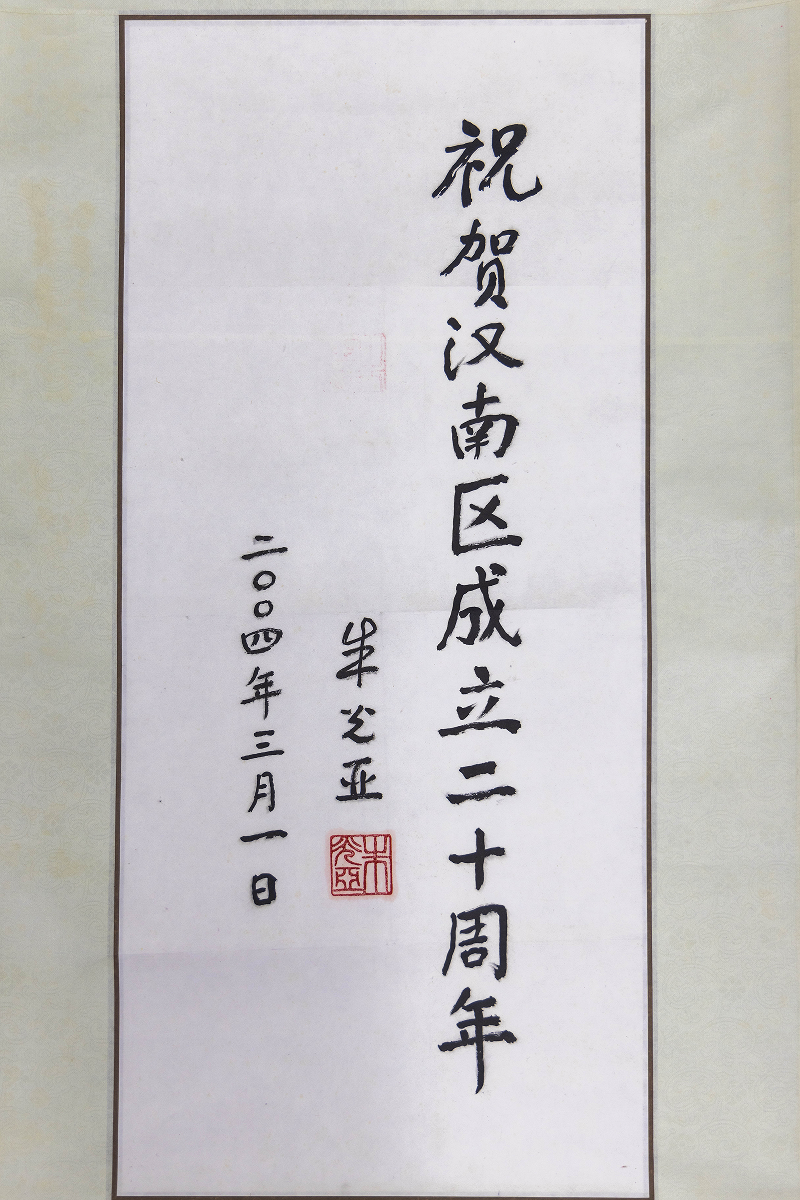 祝贺汉南区成立二十周年
朱光亚
朱光亚
二〇〇四年三月一日